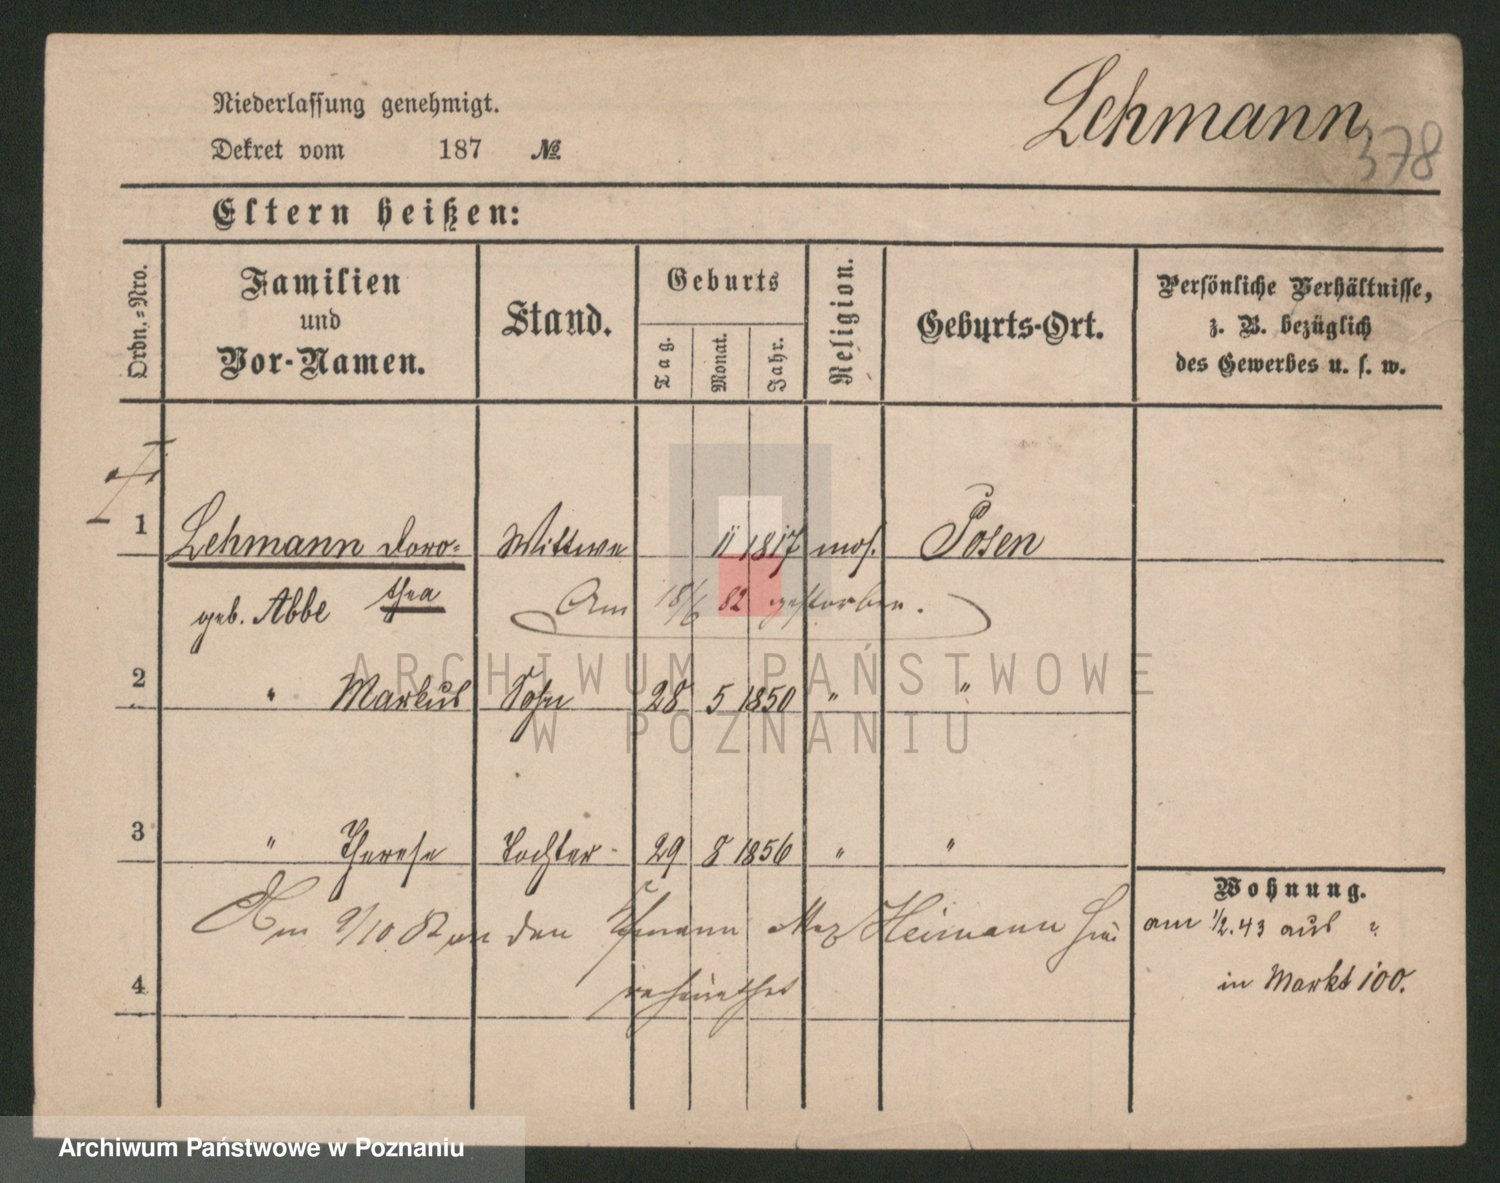 Niederlassung genehmigt.
Lehmann
378
Dekret vom 187 №
Eltern heißen:
Ordn.-Nro.
Familien
und
Vor-Namen.
Stand.
Geburts
Tag.
Monat.
Jahr.
Religion.
Geburts-Ort.
Persönliche Verhältnisse,
z. B. bezüglich
des Gewerbes u. s. w.
1 Lehmann Doro- Wittwe 1817 mos. Posen
thea
geb. Abbe
Am 18/6 82 gestorben.
2 " Markus Sohn 28 5 1850 " "
ARCHIWUM PAŃSTWOWE
W POZNANIU
3 " Therese Tochter 29 8 1856 " "
Wohnung.
Am 9/10 82 an den Heimann
am 1/2. 43 aus
4
in Markt 100.
Archiwum Państwowe w Poznaniu